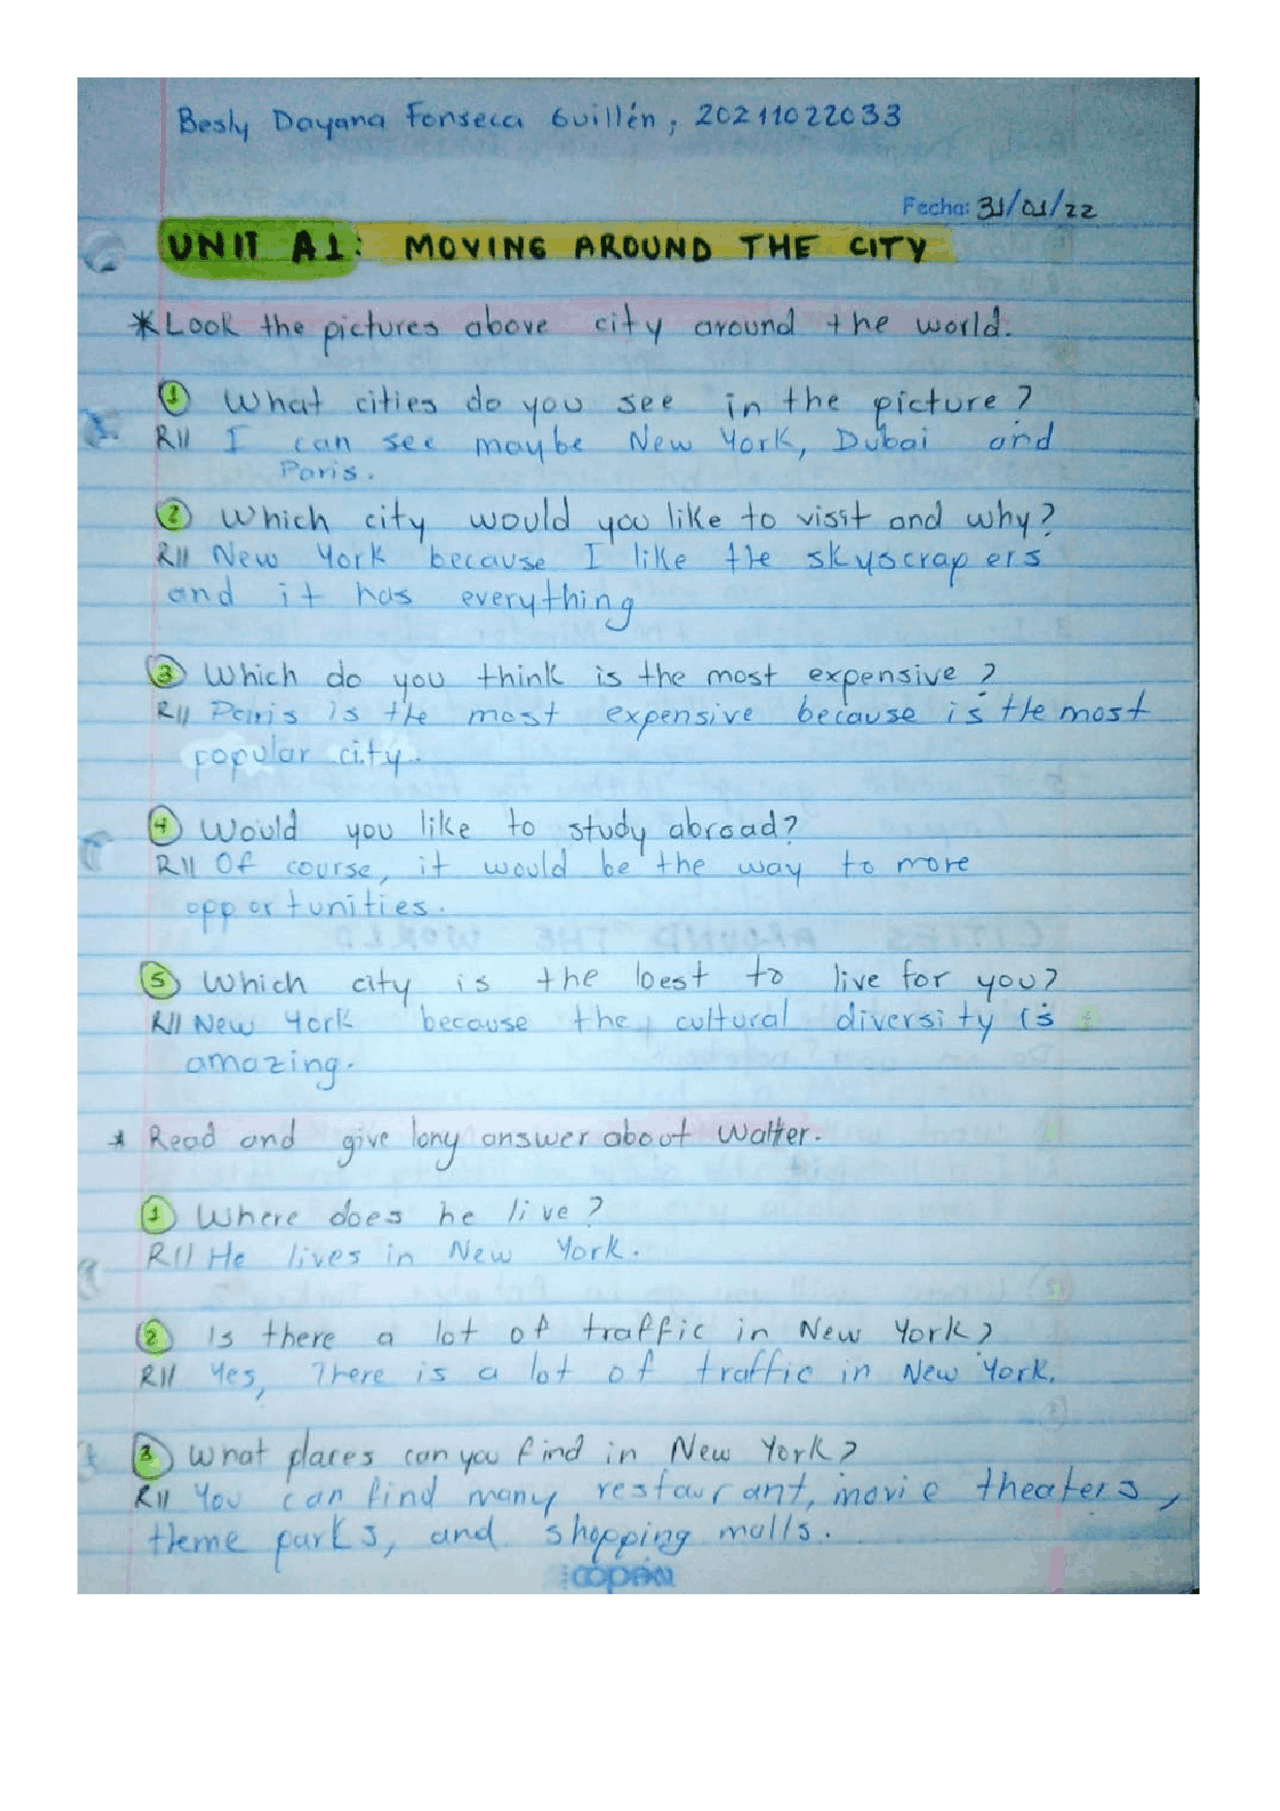 Besly Dayana Fonseca Guillén, 20211022033
Fecha: 31/01/22
UNIT A1: MOVING AROUND THE CITY
*Look the pictures above city around the world.
1 What cities do you see in the picture?
R// I can see maybe New York, Dubai and
Paris.
2 Which city would you like to visit and why?
R// New York because I like the skyscrapers
and it has everything
3 Which do you think is the most expensive?
R// Paris is the most expensive because is the most
popular city.
4 Would you like to study abroad?
R// Of course, it would be the way to more
opportunities.
5 Which city is the best to live for you?
R// New York because the cultural diversity is
amazing.
* Read and give long answer about Walter.
1 Where does he live?
R// He lives in New York.
2 Is there a lot of traffic in New York?
R// Yes, There is a lot of traffic in New York.
3 What places can you find in New York?
R// You can find many restaurant, movie theaters,
theme parks, and shopping malls.
copan